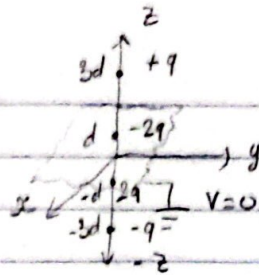 z
3d +q
d -2q
y
x -d 2q V=0
-3d -q
-z